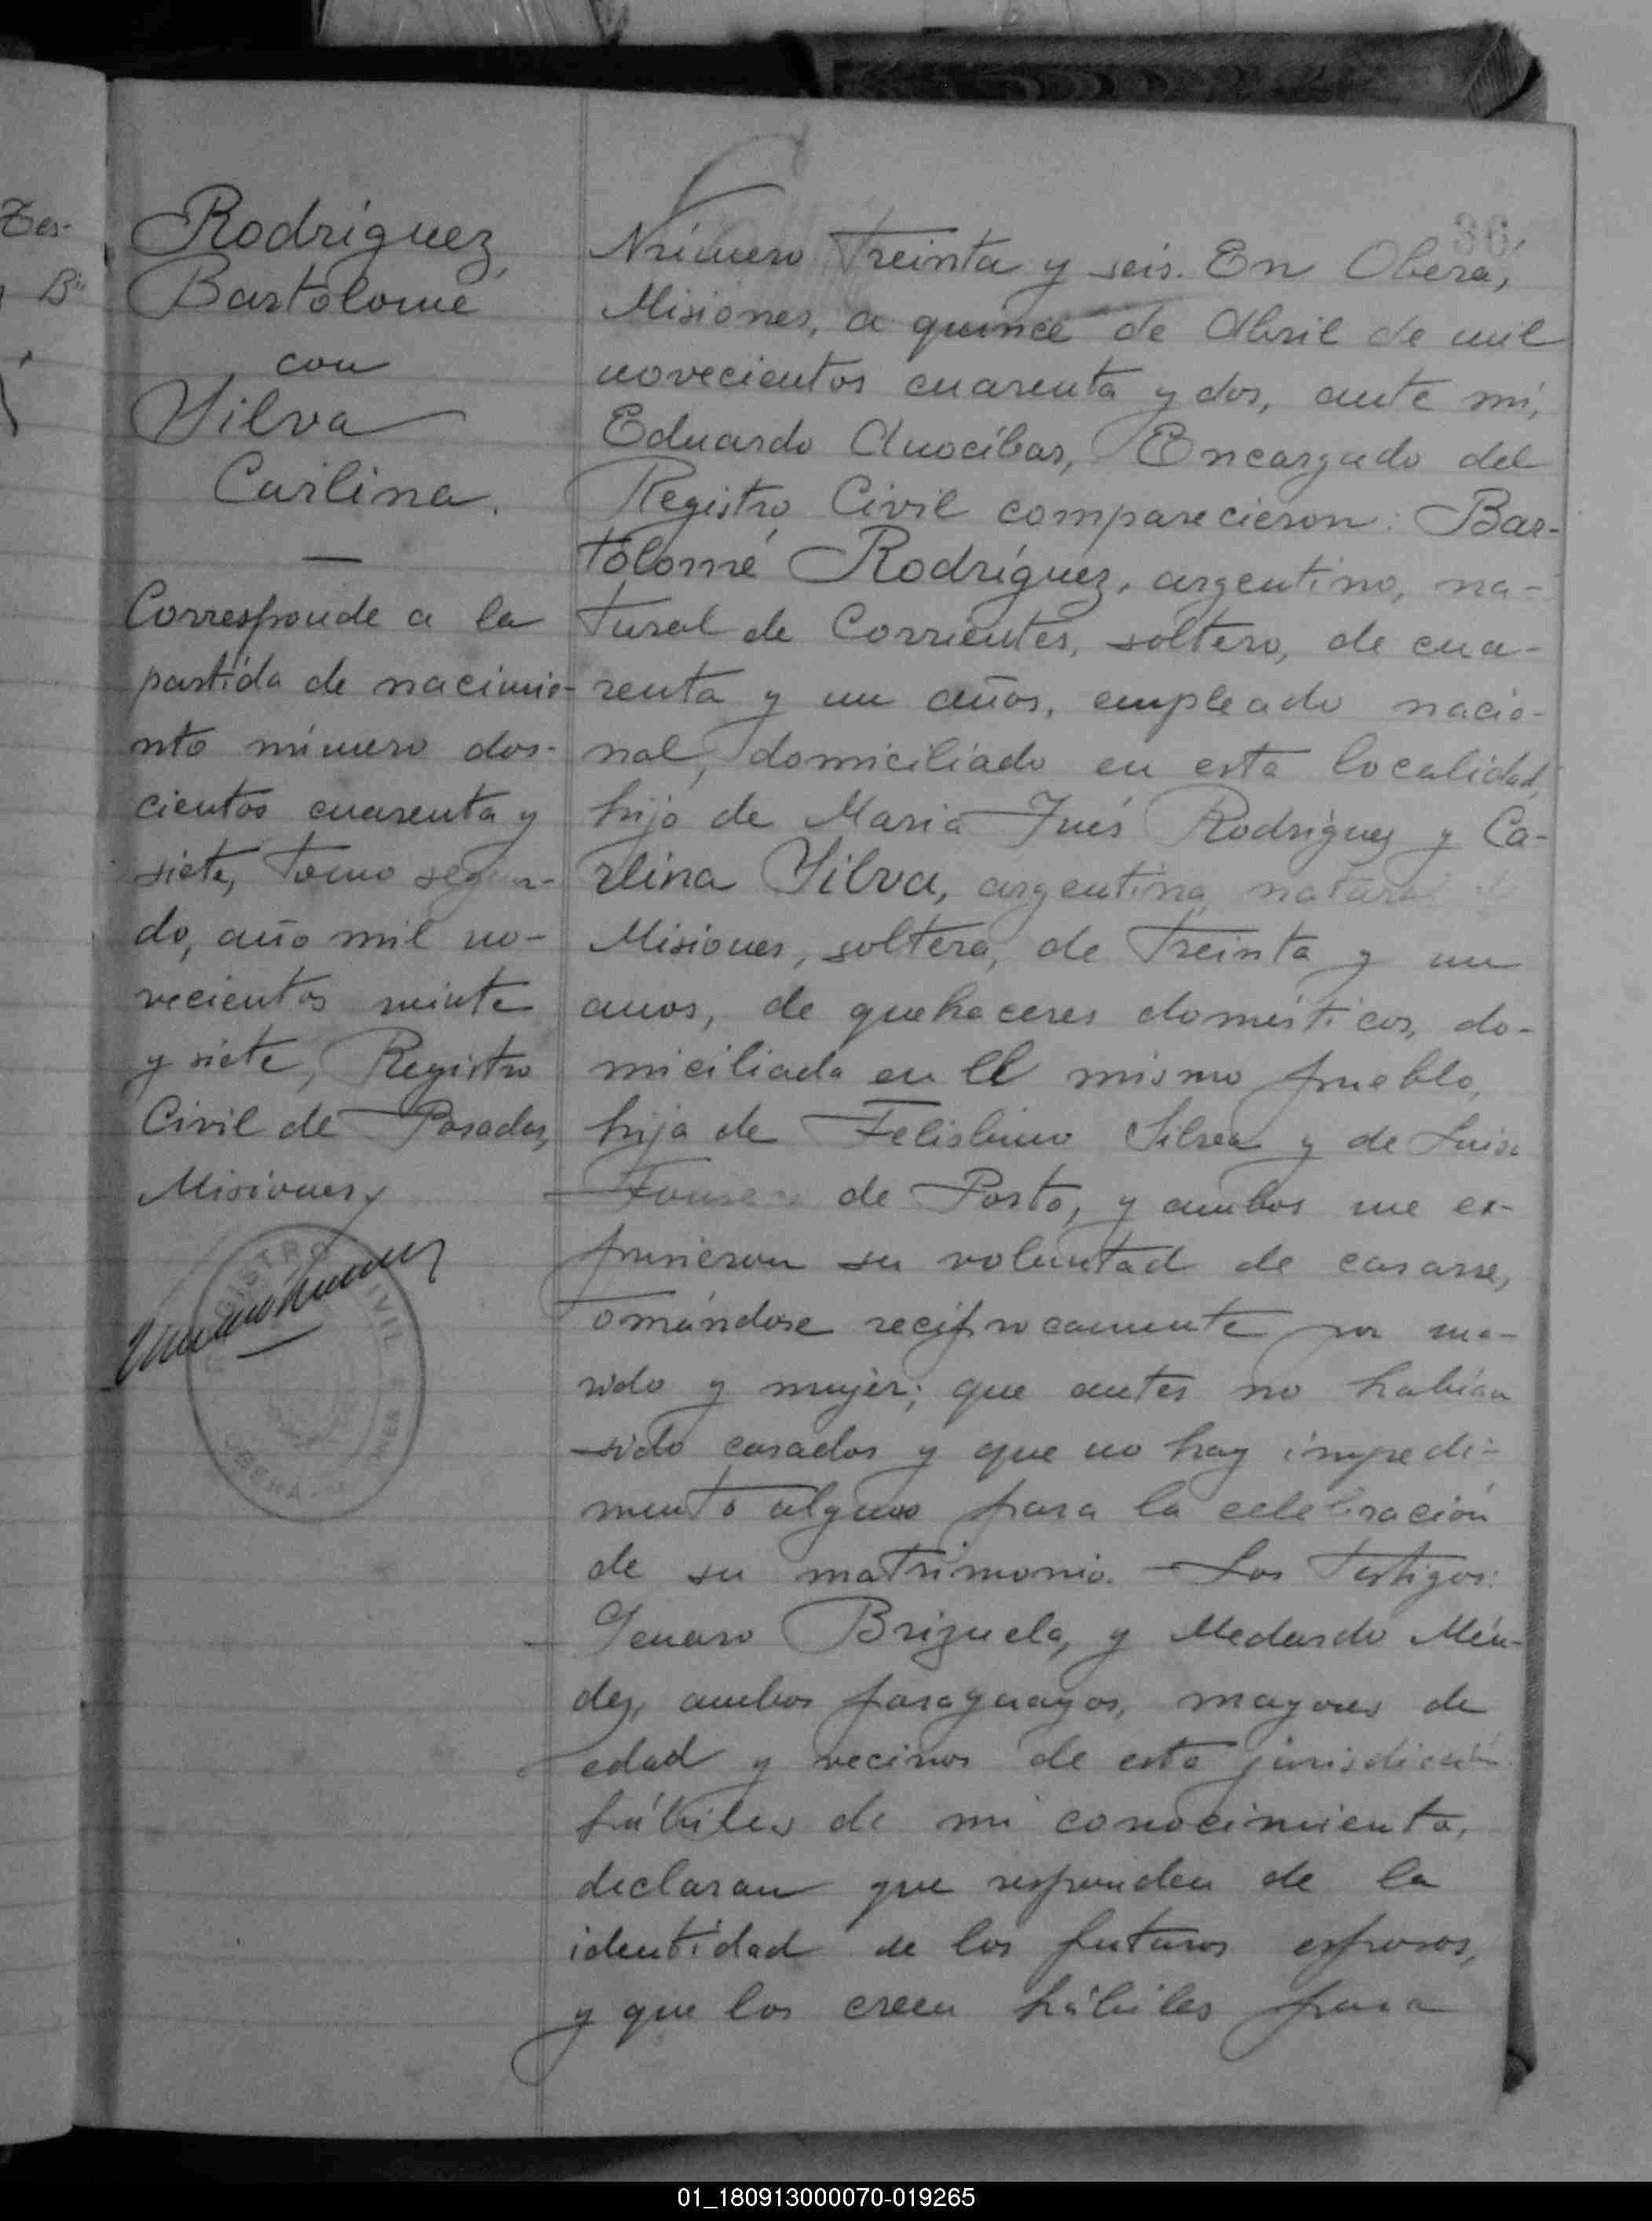 Rodríguez,
Bartolomé
con
Silva
Carlina.
Corresponde a la
partida de nacimie-
nto número dos-
cientos cuarenta y
siete, Tomo segun-
do, año mil no-
vecientos veinte
y siete, Registro
Civil de Posadas,
Misiones,
REGISTRO CIVIL
OBERÁ - MISIONES
36
Número Treinta y seis. En Oberá,
Misiones, a quince de Abril de mil
novecientos cuarenta y dos, ante mí,
Eduardo Anocíbar, Encargado del
Registro Civil comparecieron: Bar-
tolomé Rodríguez, argentino, na-
tural de Corrientes, soltero, de cua-
renta y un años, empleado nacio-
nal, domiciliado en esta localidad,
hijo de Maria Inés Rodriguez y Ca-
rlina Silva, argentina, natural de
Misiones, soltera, de Treinta y un
anos, de quehaceres domésticos, do-
miciliada en el mismo pueblo,
hija de Felisbino Silva y de Luisa
de Porto, y ambos me ex-
pusieron su voluntad de casarse,
Tomándose recíprocamente por ma-
rido y mujer; que antes no habían
sido casados y que no hay impedi-
mento alguno para la celebración
de su matrimonio. - Los Testigos:
Genaro Brizuela, y Medardo Mén-
dez, ambos paraguayos, mayores de
edad y vecinos de esta jurisdicción
hábiles de mi conocimiento,
declaran que responden de la
identidad de los futuros esposos,
y que los creen hábiles para
01_180913000070-019265